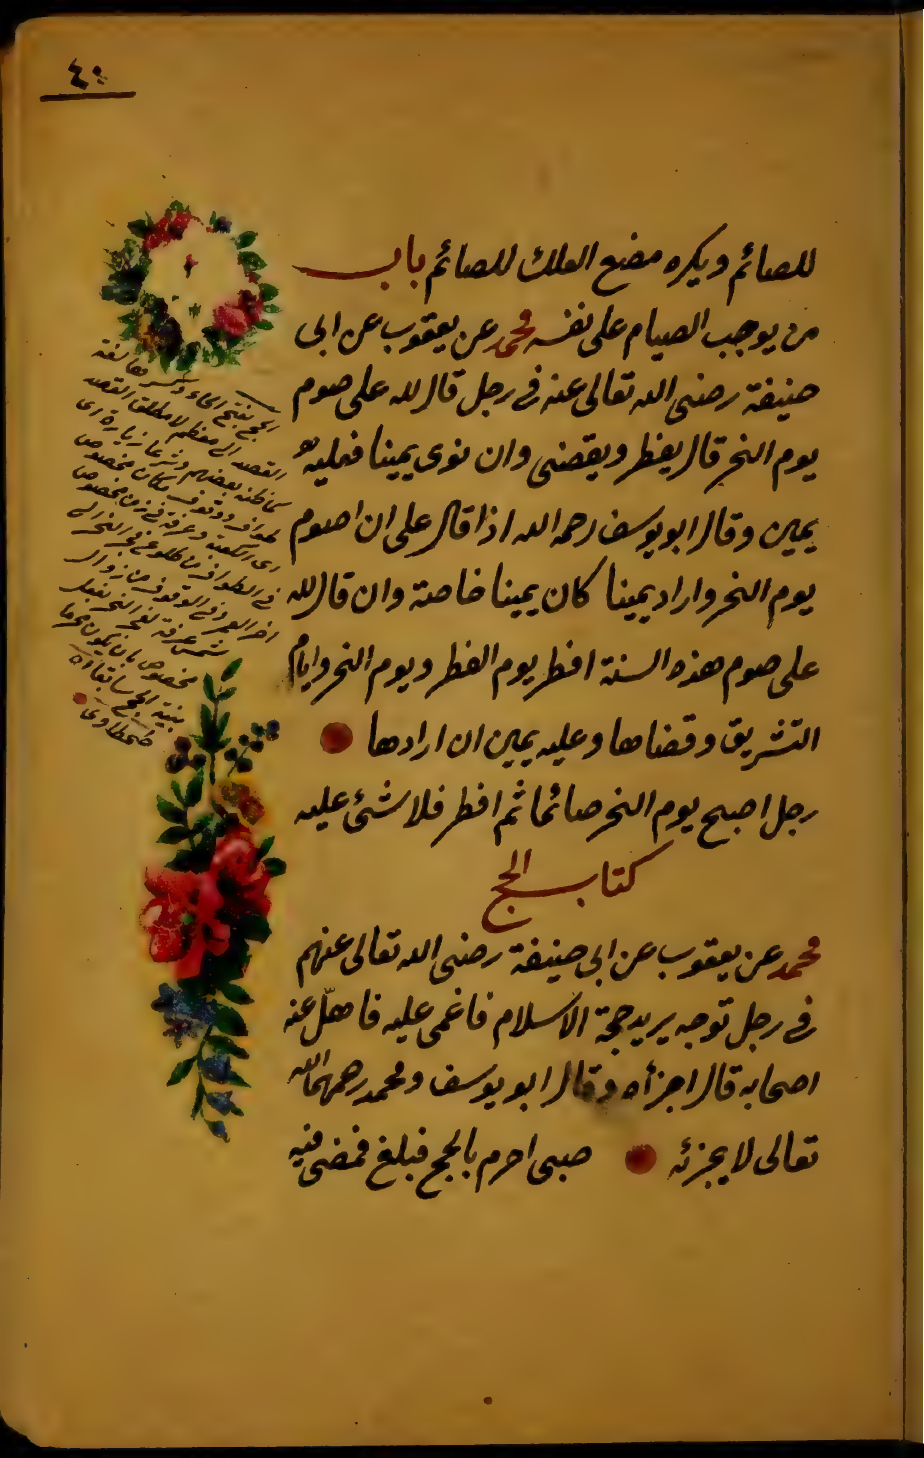 ٤٠
للصائم ويكره مضغ العلك للصائم باب
من يوجب الصيام على نفسه محمد عن يعقوب عن ابى
حنيفة رضى الله تعالى عنه فى رجل قال لله على صوم
يوم النحر قال يفطر ويقضى وان نوى يمينا فعليه
يمين وقال ابو يوسف رحمه الله اذا قال على ان اصوم
يوم النحر واراد يمينا كان يمينا خاصة وان قال لله
على صوم هذه السنة افطر يوم الفطر ويوم النحر وايام
التشريق وقضاها وعليه يمين ان ارادها
رجل اصبح يوم النحر صائما ثم افطر فلا شئ عليه
كتاب الحج
محمد عن يعقوب عن ابى حنيفة رضى الله تعالى عنهم
فى رجل توجه يريد حجة الاسلام فاغمى عليه فاهلّ عنه
اصحابه قال اجزأه وقال ابو يوسف ومحمد رحمهما الله
تعالى لا يجزئه صبى احرم بالحج فبلغ فمضى فيه
الحج بفتح الحاء وكسرها لغة
القصد الى معظم لا مطلق القصد
كما ظنه بعضهم وشرعا زيارة اى
طواف ووقوف مكان مخصوص
اى الكعبة وعرفة فى زمن مخصوص
فى الطواف من طلوع فجر النحر الى
اخر العمر وفى الوقوف من زوال
شمس عرفة لفجر النحر بفعل
مخصوص بان يكون محرما
بنية الحج سابقا اه
طحطاوى